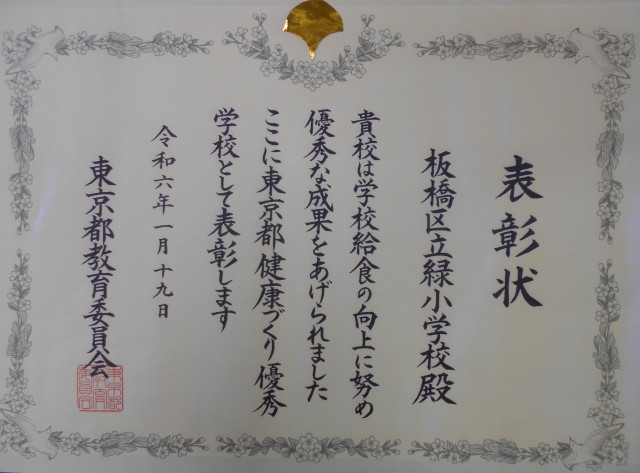 表彰状
板橋区立緑小学校殿
貴校は学校給食の向上に努め
優秀な成果をあげられました
ここに東京都健康づくり優秀
学校として表彰します
令和六年一月十九日
東京都教育委員会